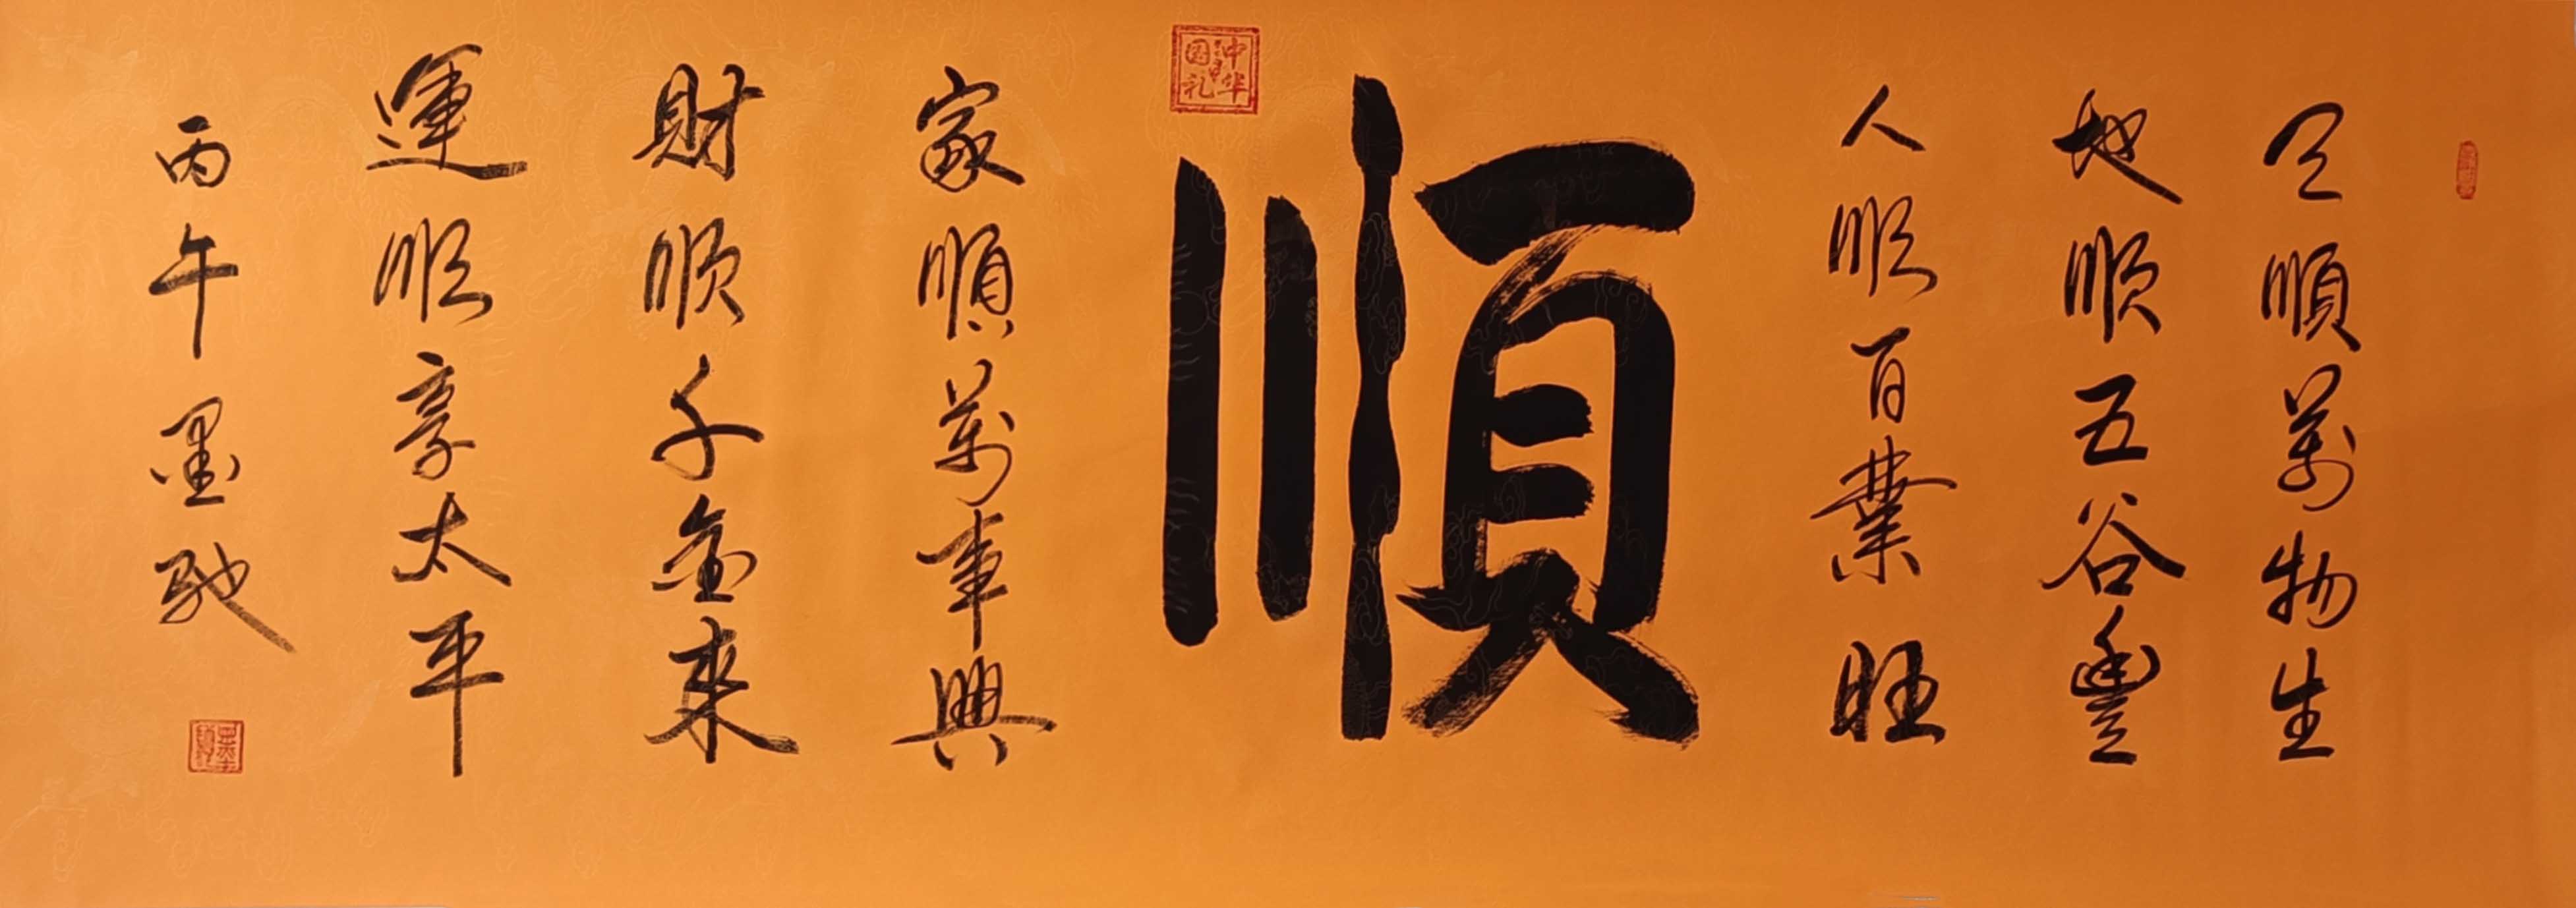 天順萬物生
地順五谷豐
人順百業旺
順
中华国礼
家順萬事興
財順千金來
運順享太平
丙午墨馳